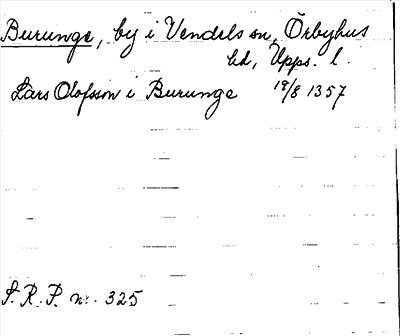 Burunge, by i Vendels sn, Örbyhus
hd, Upps. l.
Lars Olofsson i Burunge 19/8 1357
S. R. P. nr. 325